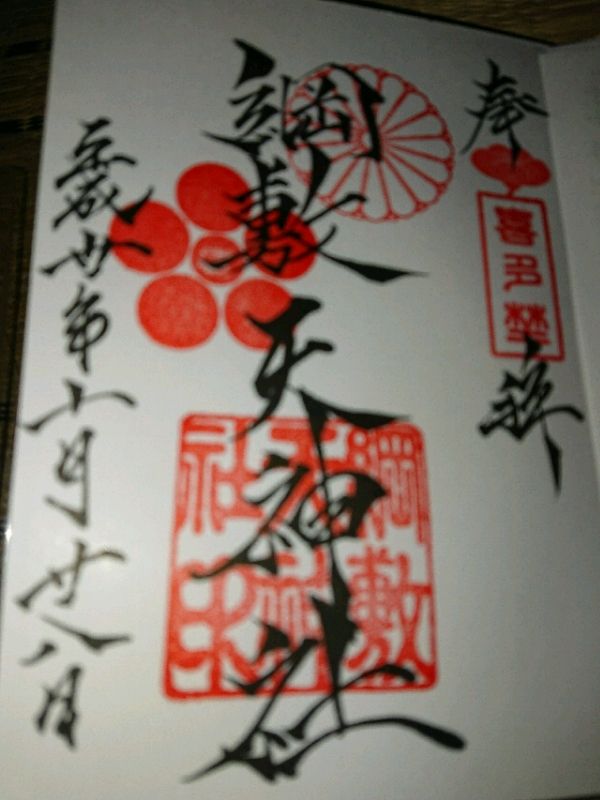 奉拝
喜多埜
綱敷天神社
綱敷
天神
社印
平成廿年十月廿八日